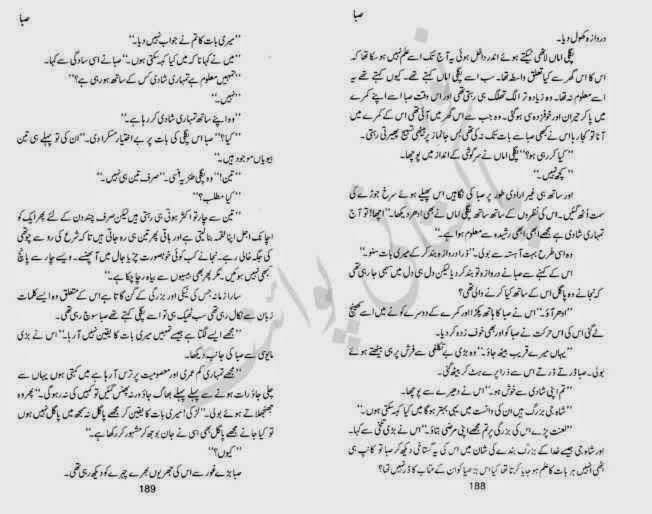 صبا
دروازہ کھول دیا۔
پگلی اماں لاٹھی ٹیکتے ہوئے اندر داخل ہوئی یہ آج تک اسے علم نہیں ہو سکا تھا کہ
اس کا اس گھر سے کیا تعلق واسطہ تھا۔ سب اسے پگلی اماں کہتے تھے۔ کیوں کہتے تھے یہ
اسے معلوم نہ تھا۔ وہ زیادہ تر الگ تھلگ ہی رہتی تھی اور اس وقت صبا اسے اپنے کمرے
میں پا کر حیران اور خوفزدہ سی ہو گئی۔ وہ جب سے اس گھر میں آئی تھی اس کے کمرے میں
آنا تو کجا رہا اس نے کبھی صبا سے بات تک نہ کی تھی بس جانماز پر بیٹھی تسبیح پھیرتی رہتی۔
"کیا کر رہی ہو؟" پگلی اماں نے سرگوشی کے انداز میں پوچھا۔
"کچھ نہیں۔"
اور ساتھ ہی غیر ارادی طور پر صبا کی نگاہیں اس پھیلے ہوئے سرخ جوڑے کی
سمت اٹھ گئیں۔ اس کی نظروں کے ساتھ ساتھ پگلی اماں نے بھی ادھر دیکھا۔ "اچھا! تو آج
تمہاری شادی ہے مجھے ابھی ابھی رشیدہ سے معلوم ہوا ہے۔"
وہ اسی طرح بہت آہستہ سے بولی۔ "ذرا دروازہ بند کر کے میری بات سنو۔"
اس کے کہنے سے صبا نے دروازہ تو بند کر دیا لیکن دل ہی دل میں سہمی جا رہی تھی
کہ نجانے وہ پاگل اس کے ساتھ کیا کرنے والی تھی؟
"ادھر آؤ۔" اس نے صبا کا ہاتھ پکڑا اور کمرے کے دوسرے کونے میں اسے کھینچ
لے گئی اس کی اس حرکت نے صبا کو اور بھی خوف زدہ کر دیا۔
"یہاں میرے قریب بیٹھ جاؤ۔" وہ بڑی بے تکلفی سے فرش پر ہی بیٹھتے ہوئے
بولی۔ صبا ڈرتے ڈرتے اس سے ذرا پرے ہٹ کر بیٹھ گئی۔
"تم اپنی شادی سے خوش ہو۔" اس نے دھیرے سے پوچھا۔
"شاہ جی بزرگ ہیں ان کی دانست میں یہی بہتر ہو گا میں کیا کہہ سکتی ہوں۔"
"لعنت پڑے اس کی بزرگی پر تم مجھے اپنی مرضی بتاؤ۔" اس نے بڑی تلخی سے کہا۔
اور شاہ جی جیسے خدا کے بزرگ بندے کی شان میں اس کی یہ گستاخی دیکھ کر صبا تو کانپ ہی
اٹھی انہیں ہر بات کا علم ہو جایا کرتا تھا کیا اس بڑھیا کو ان کے عتاب کا ڈر نہیں تھا؟
188
صبا
"میری بات کا تم نے جواب نہیں دیا۔"
"میں نے کہا نا کہ میں کیا کہہ سکتی ہوں۔" صبا نے اسی سادگی سے کہا۔
"تمہیں معلوم ہے تمہاری شادی کس کے ساتھ ہو رہی ہے؟"
"نہیں۔"
"وہ اپنے ساتھ تمہاری شادی کر رہا ہے۔"
"کیا؟" صبا اس پگلی کی بات پر بے اختیار مسکرا دی۔ "ان کی تو پہلے ہی تین
بیویاں موجود ہیں۔"
"تین!" وہ پگلی طنزیہ ہنسی۔ "صرف تین ہی نہیں۔"
"کیا مطلب؟"
"تین سے چار تو اکثر ہوتی ہی رہتی ہیں لیکن صرف چند دن کے لئے پھر ایک کو
اچانک اجل اپنا لقمہ بنا لیتی ہے اور باقی پھر تین ہی رہ جاتی ہیں تاکہ شرع کی رو سے چوتھی
کی جگہ خالی رہے۔ نجانے کب کوئی خوبصورت چڑیا جال میں آ پھنسے۔ ویسے چار سے پانچ
کبھی نہیں ہوئیں۔ مگر پھر بھی بیسیوں سے بیاہ رچا چکا ہے۔"
سارا زمانہ جس کی نیکی اور بزرگی کے گن گاتا ہے اس کے متعلق وہ ایسے کلمات
زبان سے نکال رہی تھی سب ٹھیک ہی تو اسے پگلی کہتے تھے صبا سوچ رہی تھی۔
"مجھے ایسے لگتا ہے جیسے تمہیں میری بات کا یقین نہیں آ رہا۔" اس نے بڑی
مایوسی سے صبا کی جانب دیکھا۔
"مجھے تمہاری کم عمری اور معصومیت پر ترس آ رہا ہے میں کہتی ہوں یہاں سے
چلی جاؤ رات ہونے سے پہلے پہلے بھاگ جاؤ ورنہ پھنس گئیں تو کہیں کی نہ رہو گی۔" پھر وہ
جھنجھلاتے ہوئے بولی۔ "لڑکی! میری بات کا یقین کر مجھے پاگل نہ سمجھ میں پاگل نہیں ہوں
تو کیا جانے مجھے پاگل بھی اسی نے جان بوجھ کر مشہور کر رکھا ہے۔"
"کیوں؟"
صبا بڑے غور سے اس کی جھریوں بھرے چہرے کو دیکھ رہی تھی۔
189